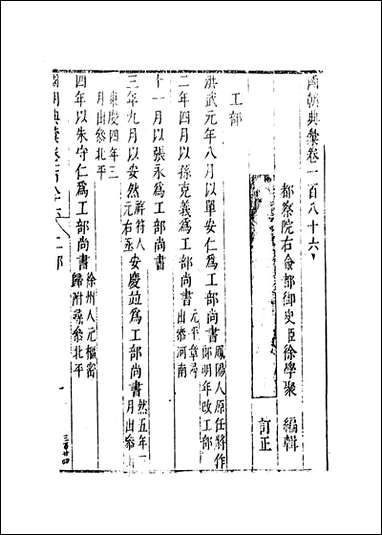 國朝典彙卷一百八十六
都察院右僉都御史臣徐學聚 編輯
訂正
工部
洪武元年八月以單安仁為工部尚書 鳳陽人原任將作 明年改工部
二年四月以孫克義為工部尚書 元平章尋 出參河南
十一月以張永為工部尚書
三年九月以安然 祥符人 元右丞 安慶並為工部尚書 然五年 月出參
慶四年三 月出參北平
四年以朱守仁為工部尚書 徐州人元樞密 歸附尋參北平
國朝典彙卷 工部
一
三百廿四